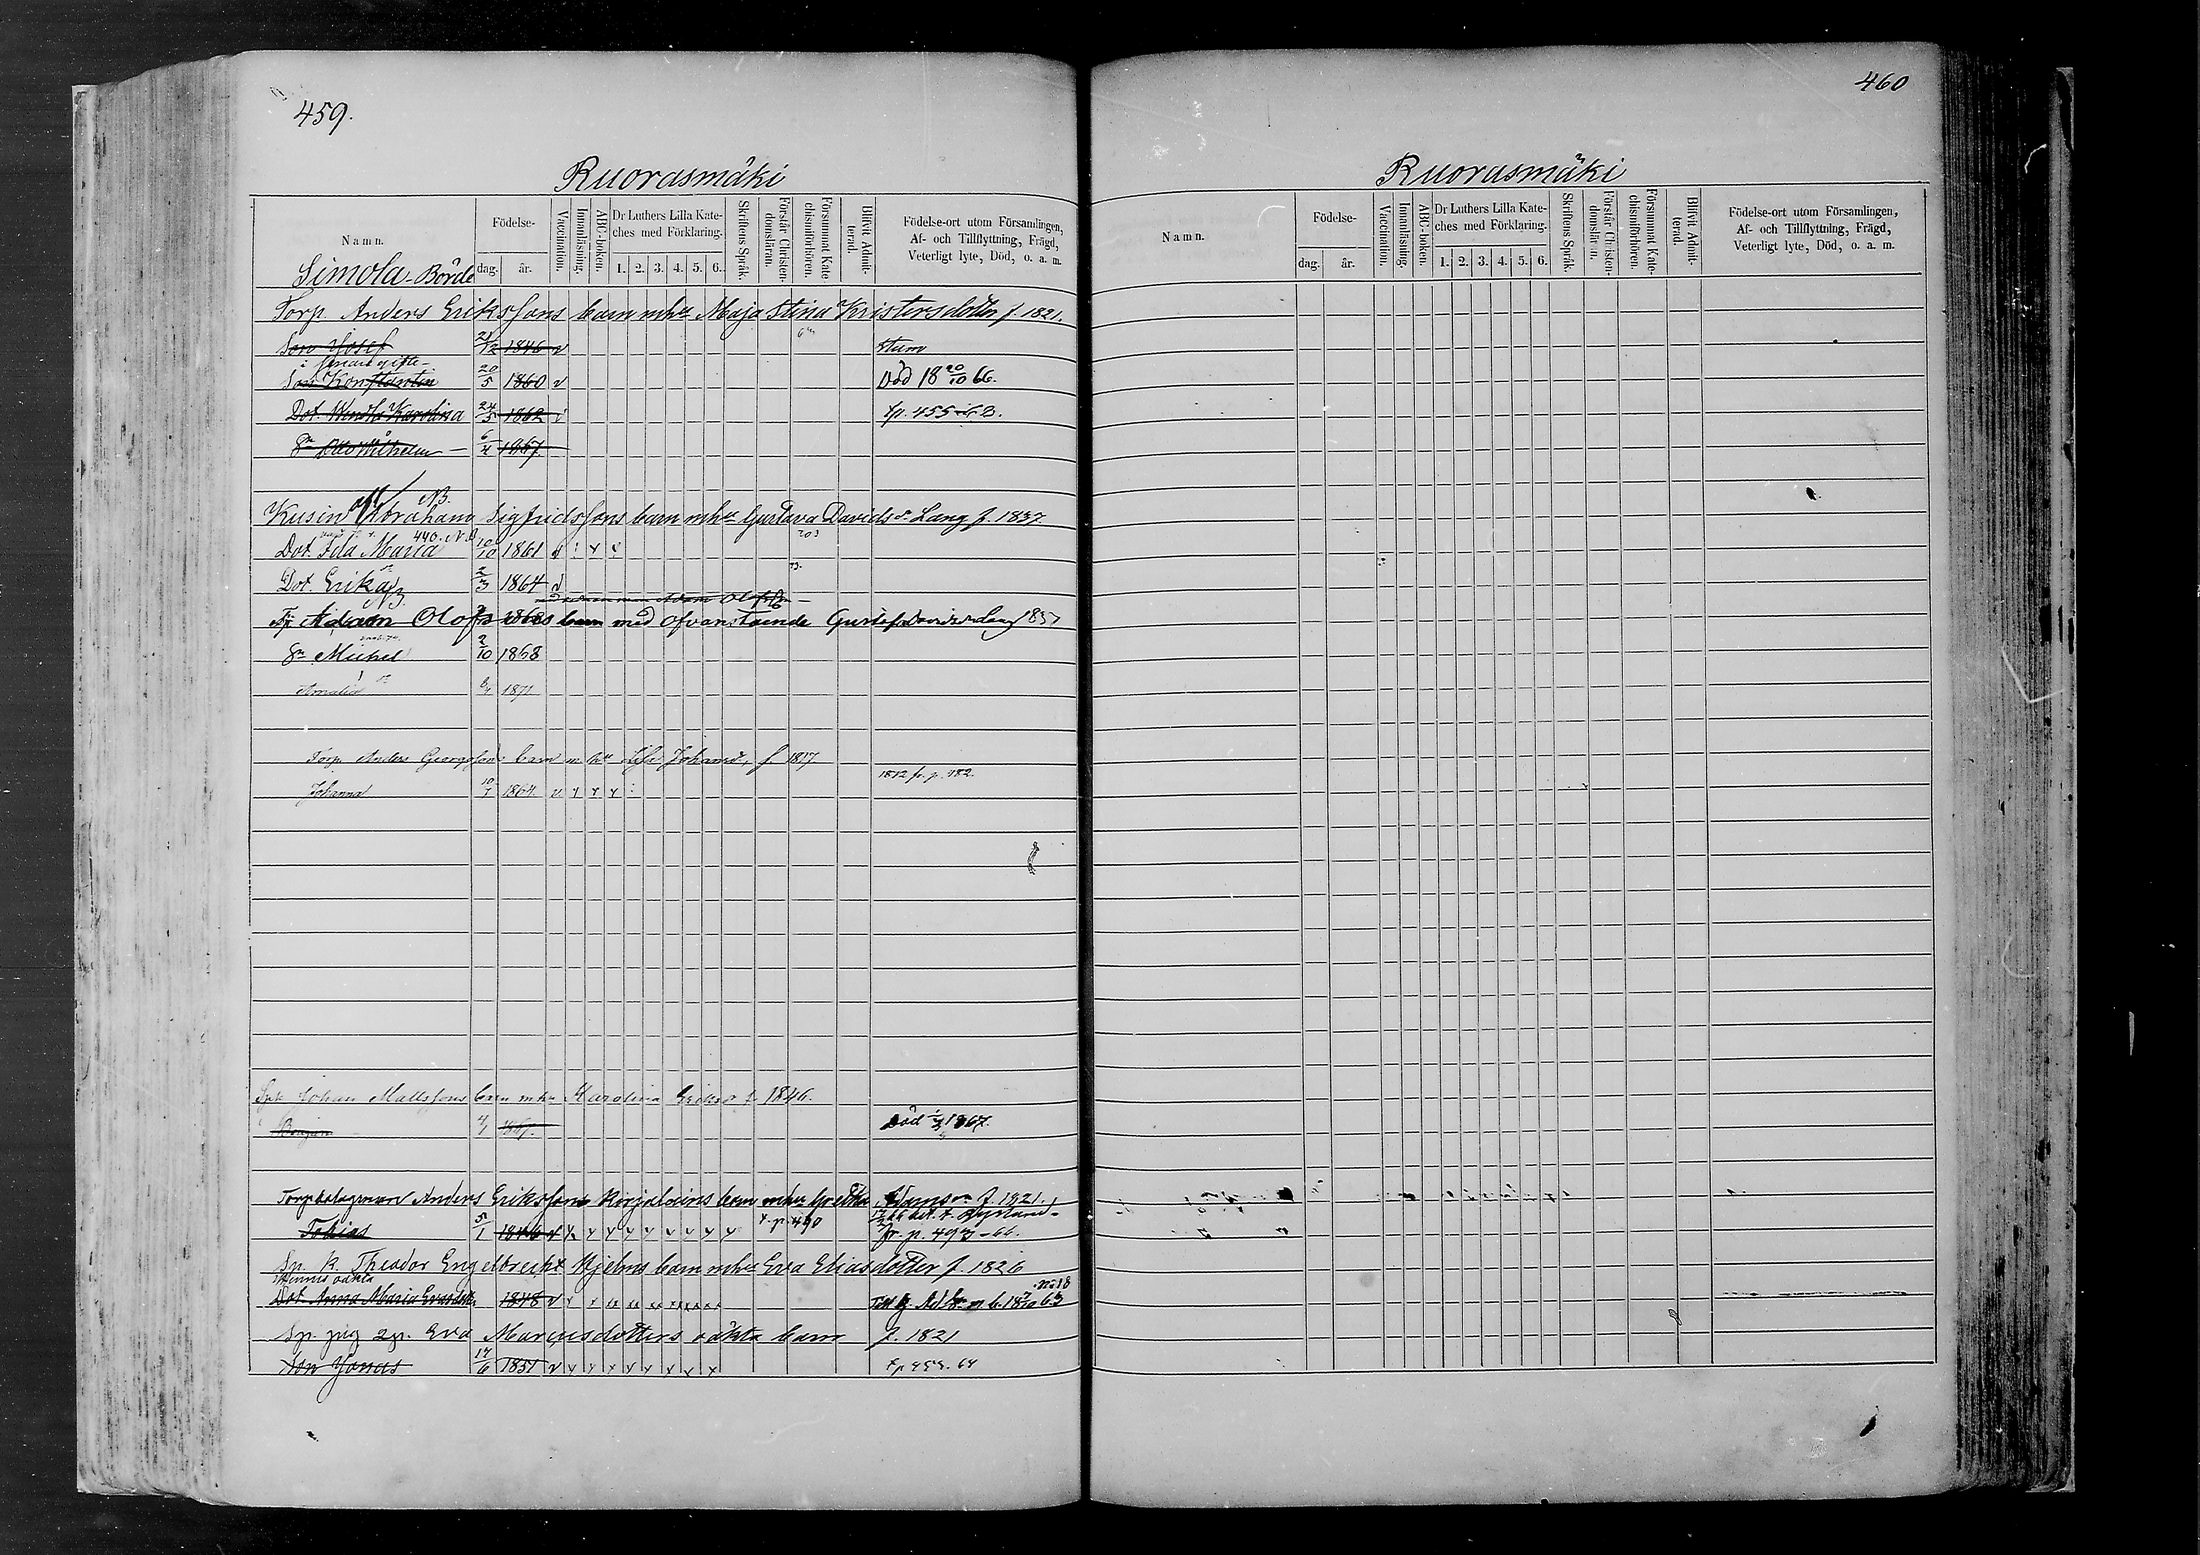 459.
Ruorasmäki
Namn.
Födelse-
dag. år.
Vaccination.
Innanläsning.
ABC-boken.
Dr Luthers Lilla Kate-
ches med Förklaring.
1. 2. 3. 4. 5. 6.
Skriftens Språk.
Förstår Christen-
domsläran.
Försummat Kate-
chismiförhören.
Blifvit Admit-
terad.
Födelse-ort utom Församlingen,
Af- och Tillflyttning, Frägd,
Veterligt lyte, Död, o. a. m.
Simola-Börde
Torp. Anders Erikssons barn mhu Maja Stina Kristersdotter f. 1821.
Son Josef 12 1846 v stum
Son Konstantin 20/5 1860 v Död 18 20/10 66.
Dot. Wendla Karolina 24/5 1862 tp. 455
Sn Otto Wilhelm 6/4 1867
NB.
Kusin Abraham Sigfridssons barn mhu Gustava Davids dr Lang f. 1837
440.
Dot. Ida Maria 10/10 1861 v
Dot. Erika 2/3 1864 v
Adam Olofs barn med ofvanstående Gustafva Davidsdr Lang 1837
Sn Michel 2/10 1868
Amalia 1871
Torp. Anders Georgsson barn m hu Johansd. f. 1837
1882 fr. p. 982.
Johanna 10/7 1864. v
Johan Mattssons barn mhu Karolina Eriksd f. 1846.
Benjam 4/1 1867. Död 1867.
Anders Erikssons Korjalains barn mhu Gretha Adamsdr f. 1821.
t. p. 490
Tobias 5/1 1846 v fr. p. 493-66.
Sp. k. Theodor Engelbrecht Hjelms barn mhu Eva Eliasdotter f. 1826
Hennes oäkta
Dot. Anna Maria Evasdotter 1848 v
Sp. pig Eva Marcusdotters oäkta barn f. 1821
Son Jonas 17/6 1851 v
460
Ruorasmäki
Namn.
Födelse-
dag. år.
Vaccination.
Innanläsning.
ABC-boken.
Dr Luthers Lilla Kate-
ches med Förklaring.
1. 2. 3. 4. 5. 6.
Skriftens Språk.
Förstår Christen-
domsläran.
Försummat Kate-
chismiförhören.
Blifvit Admit-
terad.
Födelse-ort utom Församlingen,
Af- och Tillflyttning, Frägd,
Veterligt lyte, Död, o. a. m.